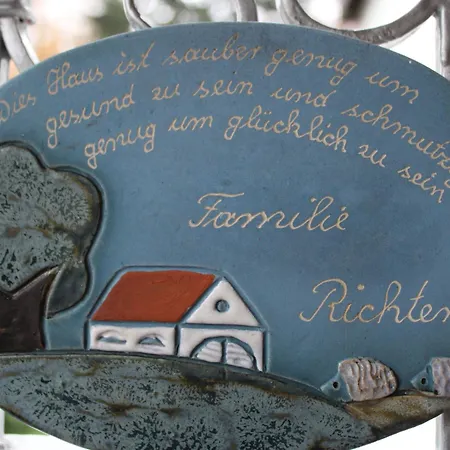 Dies Haus ist sauber genug um
gesund zu sein und schmutzig
genug um glücklich zu sein
Familie
Richter